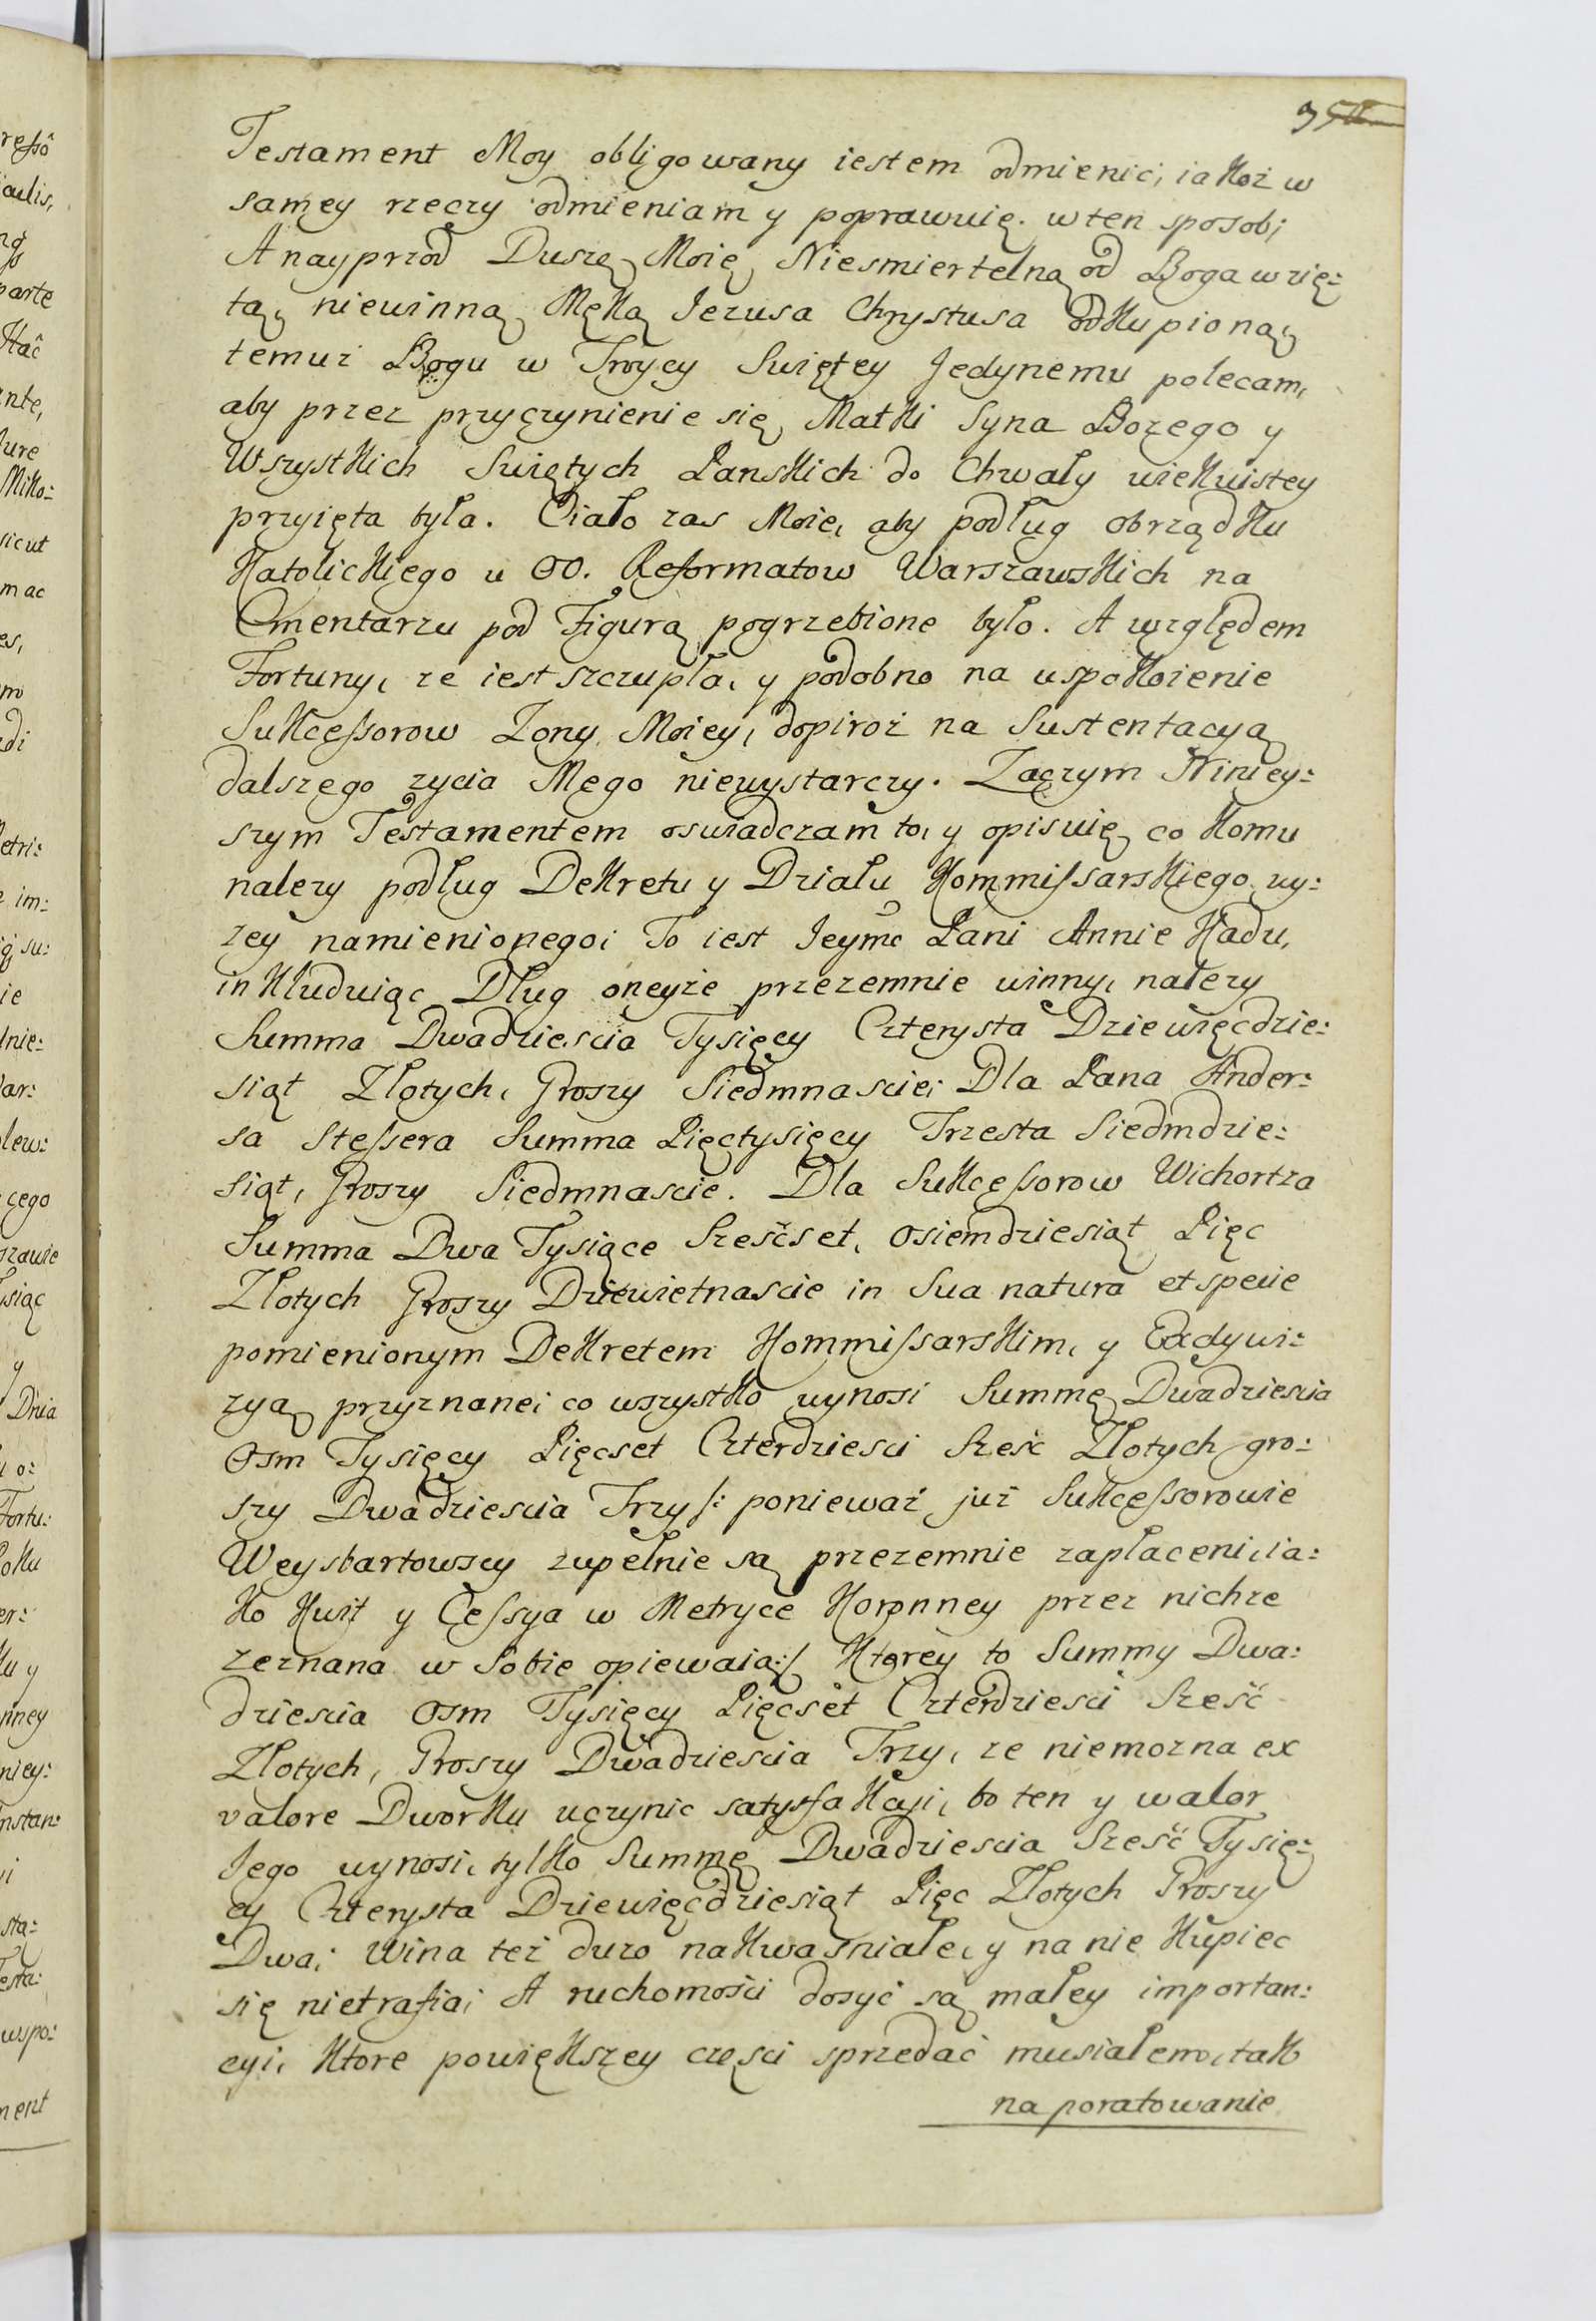 Testament Moy obligowany iestem odmienic, iakoż w
samey rzeczy odmieniam y poprawuię. w ten sposob;
A nayprzod Duszę Moię Niesmiertelną od Boga wzię:
tą, niewinną Męką Jezusa Chrystusa odkupioną,
temuż Bogu w Troycy Swiętey Jedynemu polecam,
aby przez przyczynienie się Matki Syna Bozego y
Wszystkich Swiętych Panskich do Chwały wiekuistey
przyięta była. Ciało zas Moie, aby podług obrządku
Katolickiego u OO. Reformatow Warszawskich na
Cmentarzu pod Figurą pogrzebione było. A względem
Fortuny, ze iest szczupła, y podobno na uspokoienie
Sukcessorow Zony Moiey, dopiroż na Sustentacyą
dalszego zycia Mego niewystarczy. Zaczym Niniey:
szym Testamentem oswiadczam to, y opisuię co komu
nalezy podług Dekretu y Działu Kommissarskiego wy:
zey namienionego; To iest Jeymc Pani Annie Kadu,
inkluduiąc Dług oneyże przezemnie winny, nalezy
Summa Dwadziescia Tysięcy Czterysta Dziewięcdzie:
siąt Złotych, Groszy Siedmnascie; Dla Pana Ander:
sa Stessera Summa Pięctysięcy Trzesta Siedmdzie:
siąt, Groszy Siedmnascie. Dla Sukcessorow Wichortza
Summa Dwa Tysiące Szesćset, Osiemdziesiąt Pięc
Złotych Groszy Dziewietnascie in Sua natura et specie
pomienionym Dekretem Kommissarskim, y Exdywi:
zyą przyznane; co wszystko wynosi Summę Dwadziescia
Osm Tysięcy Pięcset Czterdziesci Szesc Złotych gro:
szy Dwadziescia Trzy /: ponieważ już Sukcessorowie
Weysbartowscy zupełnie są przezemnie zapłaceni, ia:
ko kwit y Cessya w Metryce Koronney przez nichze
zeznana w Sobie opiewaią :/ Ktorey to Summy Dwa:
dziescia Osm Tysięcy Pięcset Czterdziesci Szesć
Złotych, Groszy Dwadziescia Trzy, ze niemozna ex
valore Dworku uczynic satysfakcyi, bo ten y walor
Jego wynosi, tylko Summę Dwadziescia Szesć Tysię:
cy Czterysta Dziewięcdziesiąt Pięc Złotych Groszy
Dwa; Wina też duzo nakwasniałe, y na nie Kupiec
się nietrafia; A ruchomości dosyć są małey importan:
cyi, Ktore powiększey części sprzedać musiałem, tak
na poratowanie